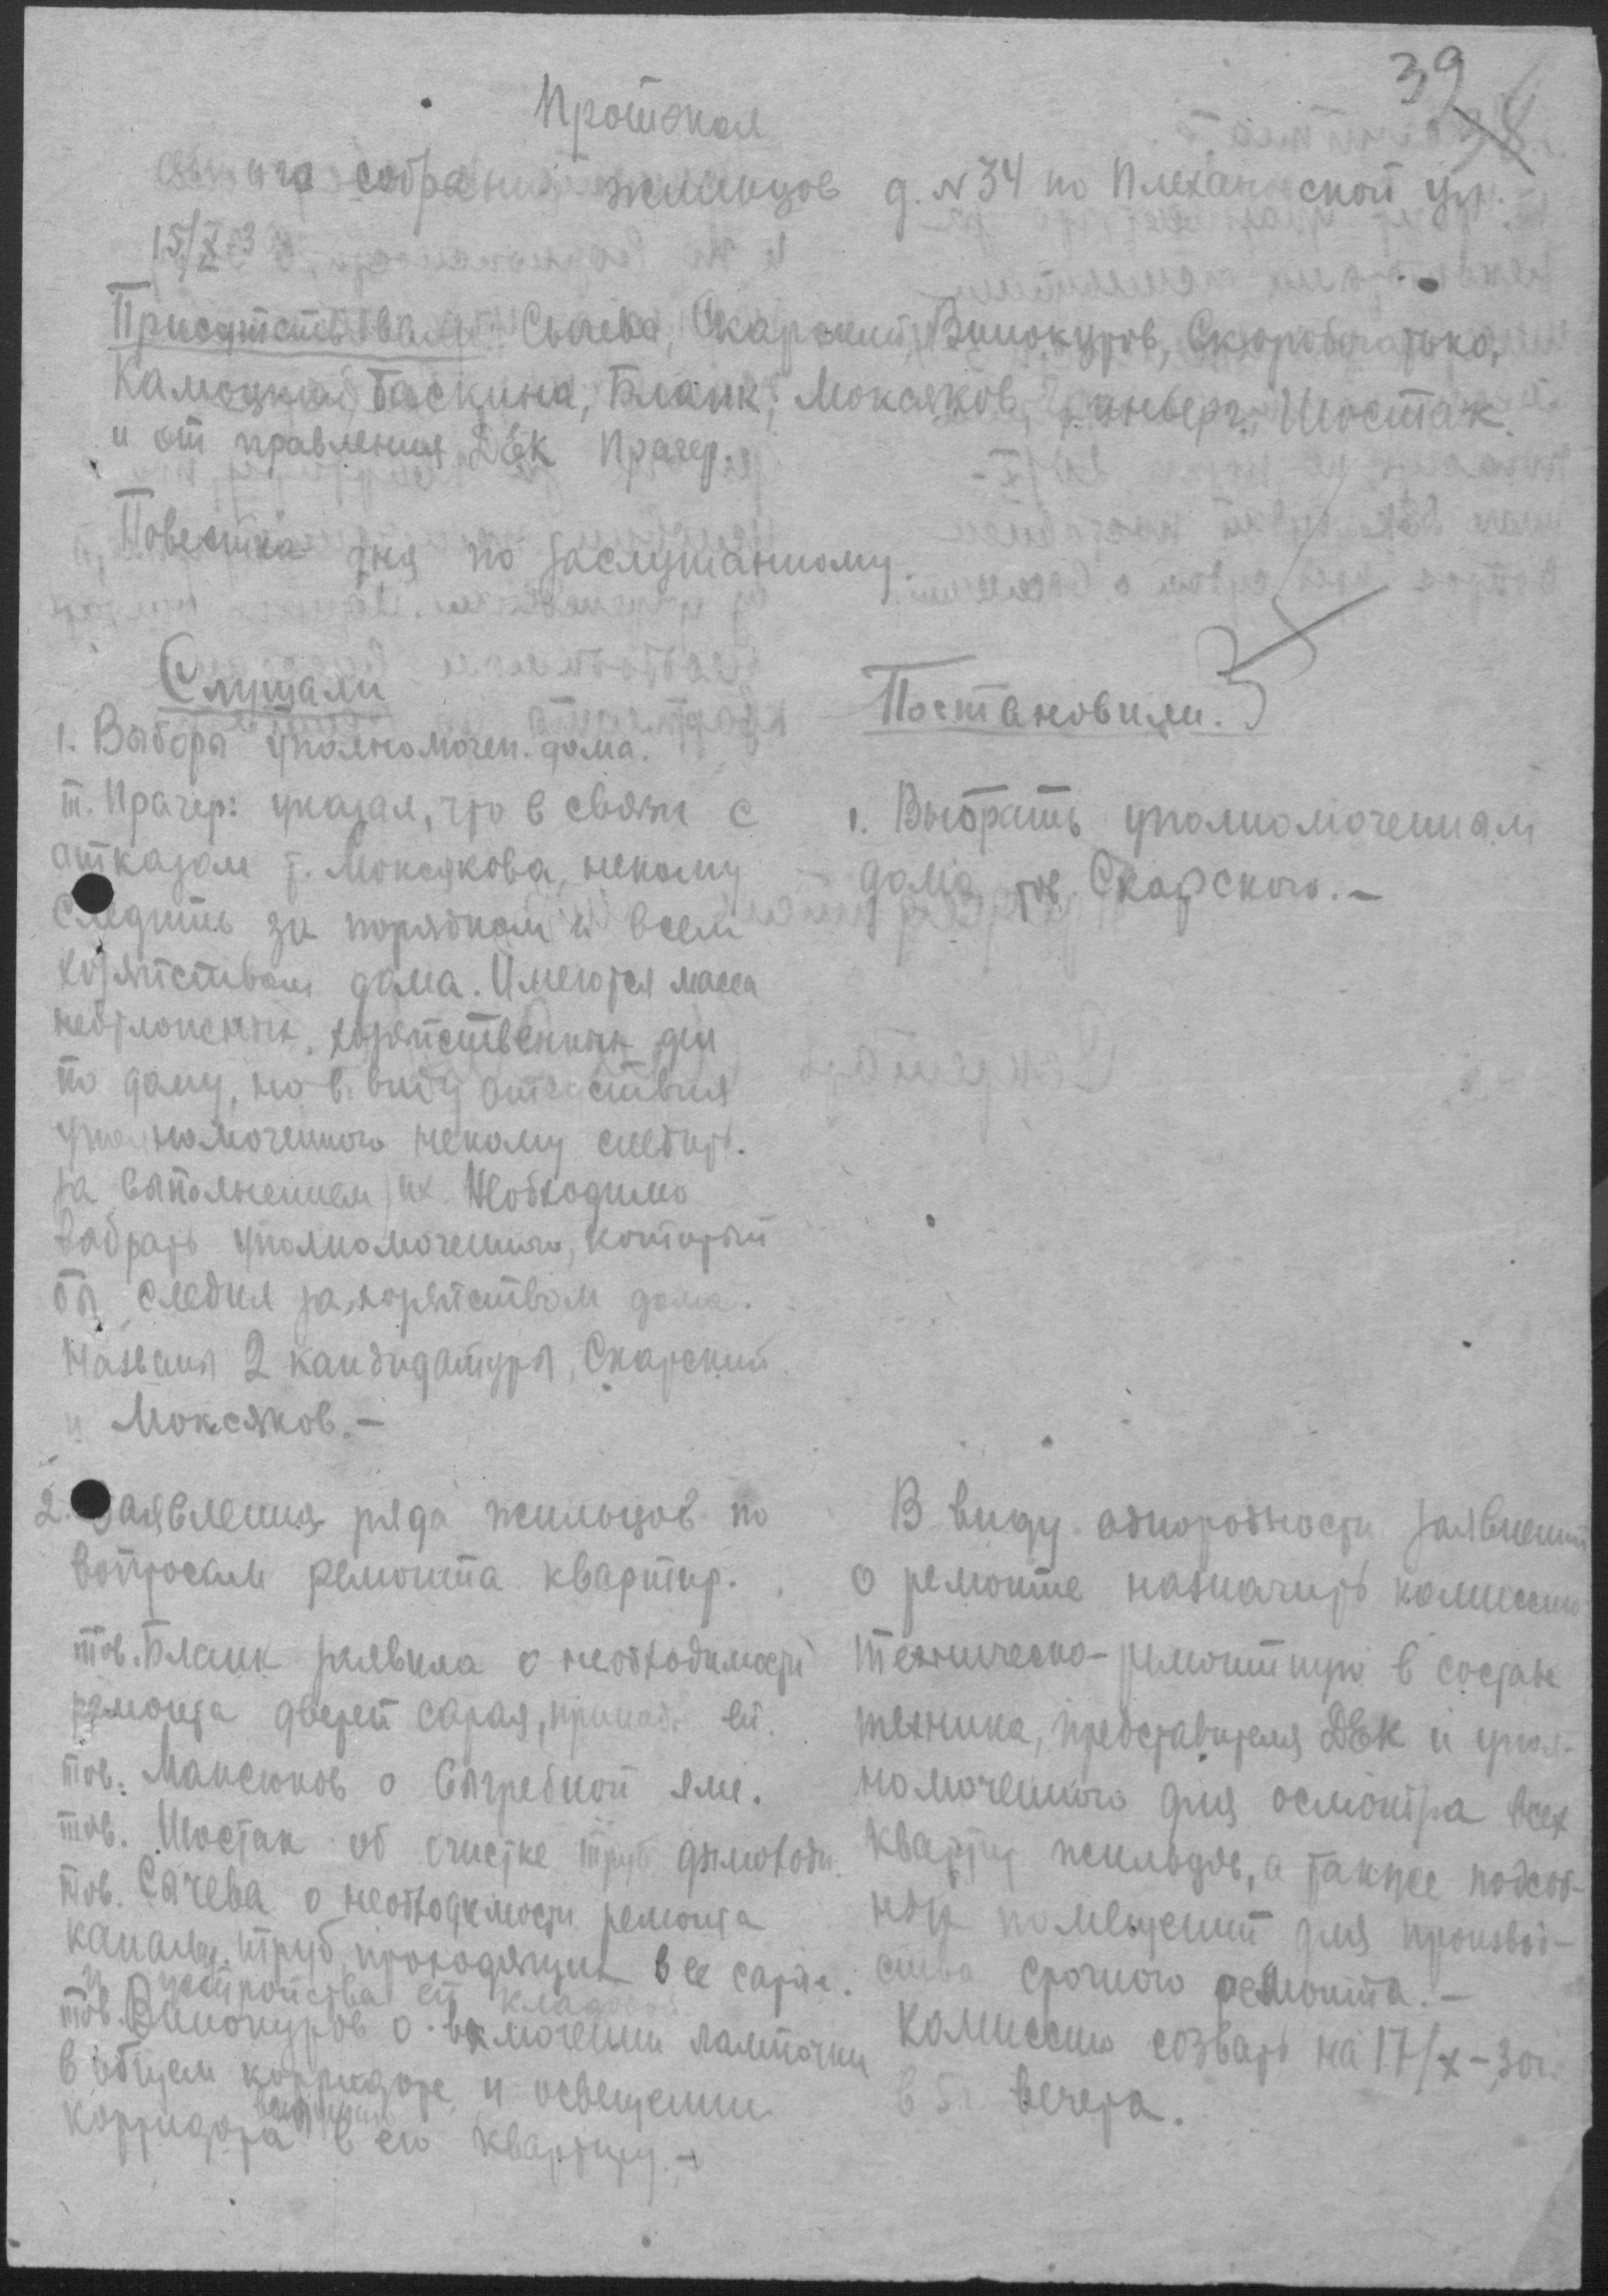 39
38
Протокол
общего собрания жильцов д. N 34 по Плехановской ул.
15/X-3
Присутствовали: Сычева, Скарский, Винокуров, Скоробогатько,
Камоцкий, Баскина, Бланк, Моксяков, Шостак
и от правления ДЕК Прачер.
Повестка дня по заслушанному.
Слушали
1. Выборы уполномочен. дома.
т. Прачер: указал, что в связи с
отказом т. Моксякова, некому
следить за порядком и всем
хозяйством дома. Имеются масса
неотложных, хозяйственных дел
по дому, но в виду отсутствия
уполномоченного некому следить
за выполнением их. Необходимо
выбрать уполномоченного, который
бы следил за хозяйством дома.
Названы 2 кандидатуры, Скарский
и Моксяков. –
2. Заявления ряда жильцов по
вопросам ремонта квартир.
тов. Бланк заявила о необходимости
ремонта дверей сарая, принад. ей.
тов. Моксяков о выгребной яме.
тов. Шостак об очистке труб дымоход.
тов. Сычева о необходимости ремонта
канализ. труб, проходящих в ее сарае.
и устройства ей кладовой.
тов. Винокуров о включении лампочки
в общем корридоре и освещении
корридора в его квартиру. –
Постановили.
1. Выбрать уполномоченным
дома тов. Скарского. –
В виду однородности заявлений
о ремонте назначить комиссию
техническо-ремонтную в составе
техника, представителя ДЕК и упол-
номоченного для осмотра всех
квартир жильцов, а также подсоб-
ных помещений для производ-
ства срочного ремонта. –
Комиссию созвать на 17/X-30г.
в 5 ч. вечера.